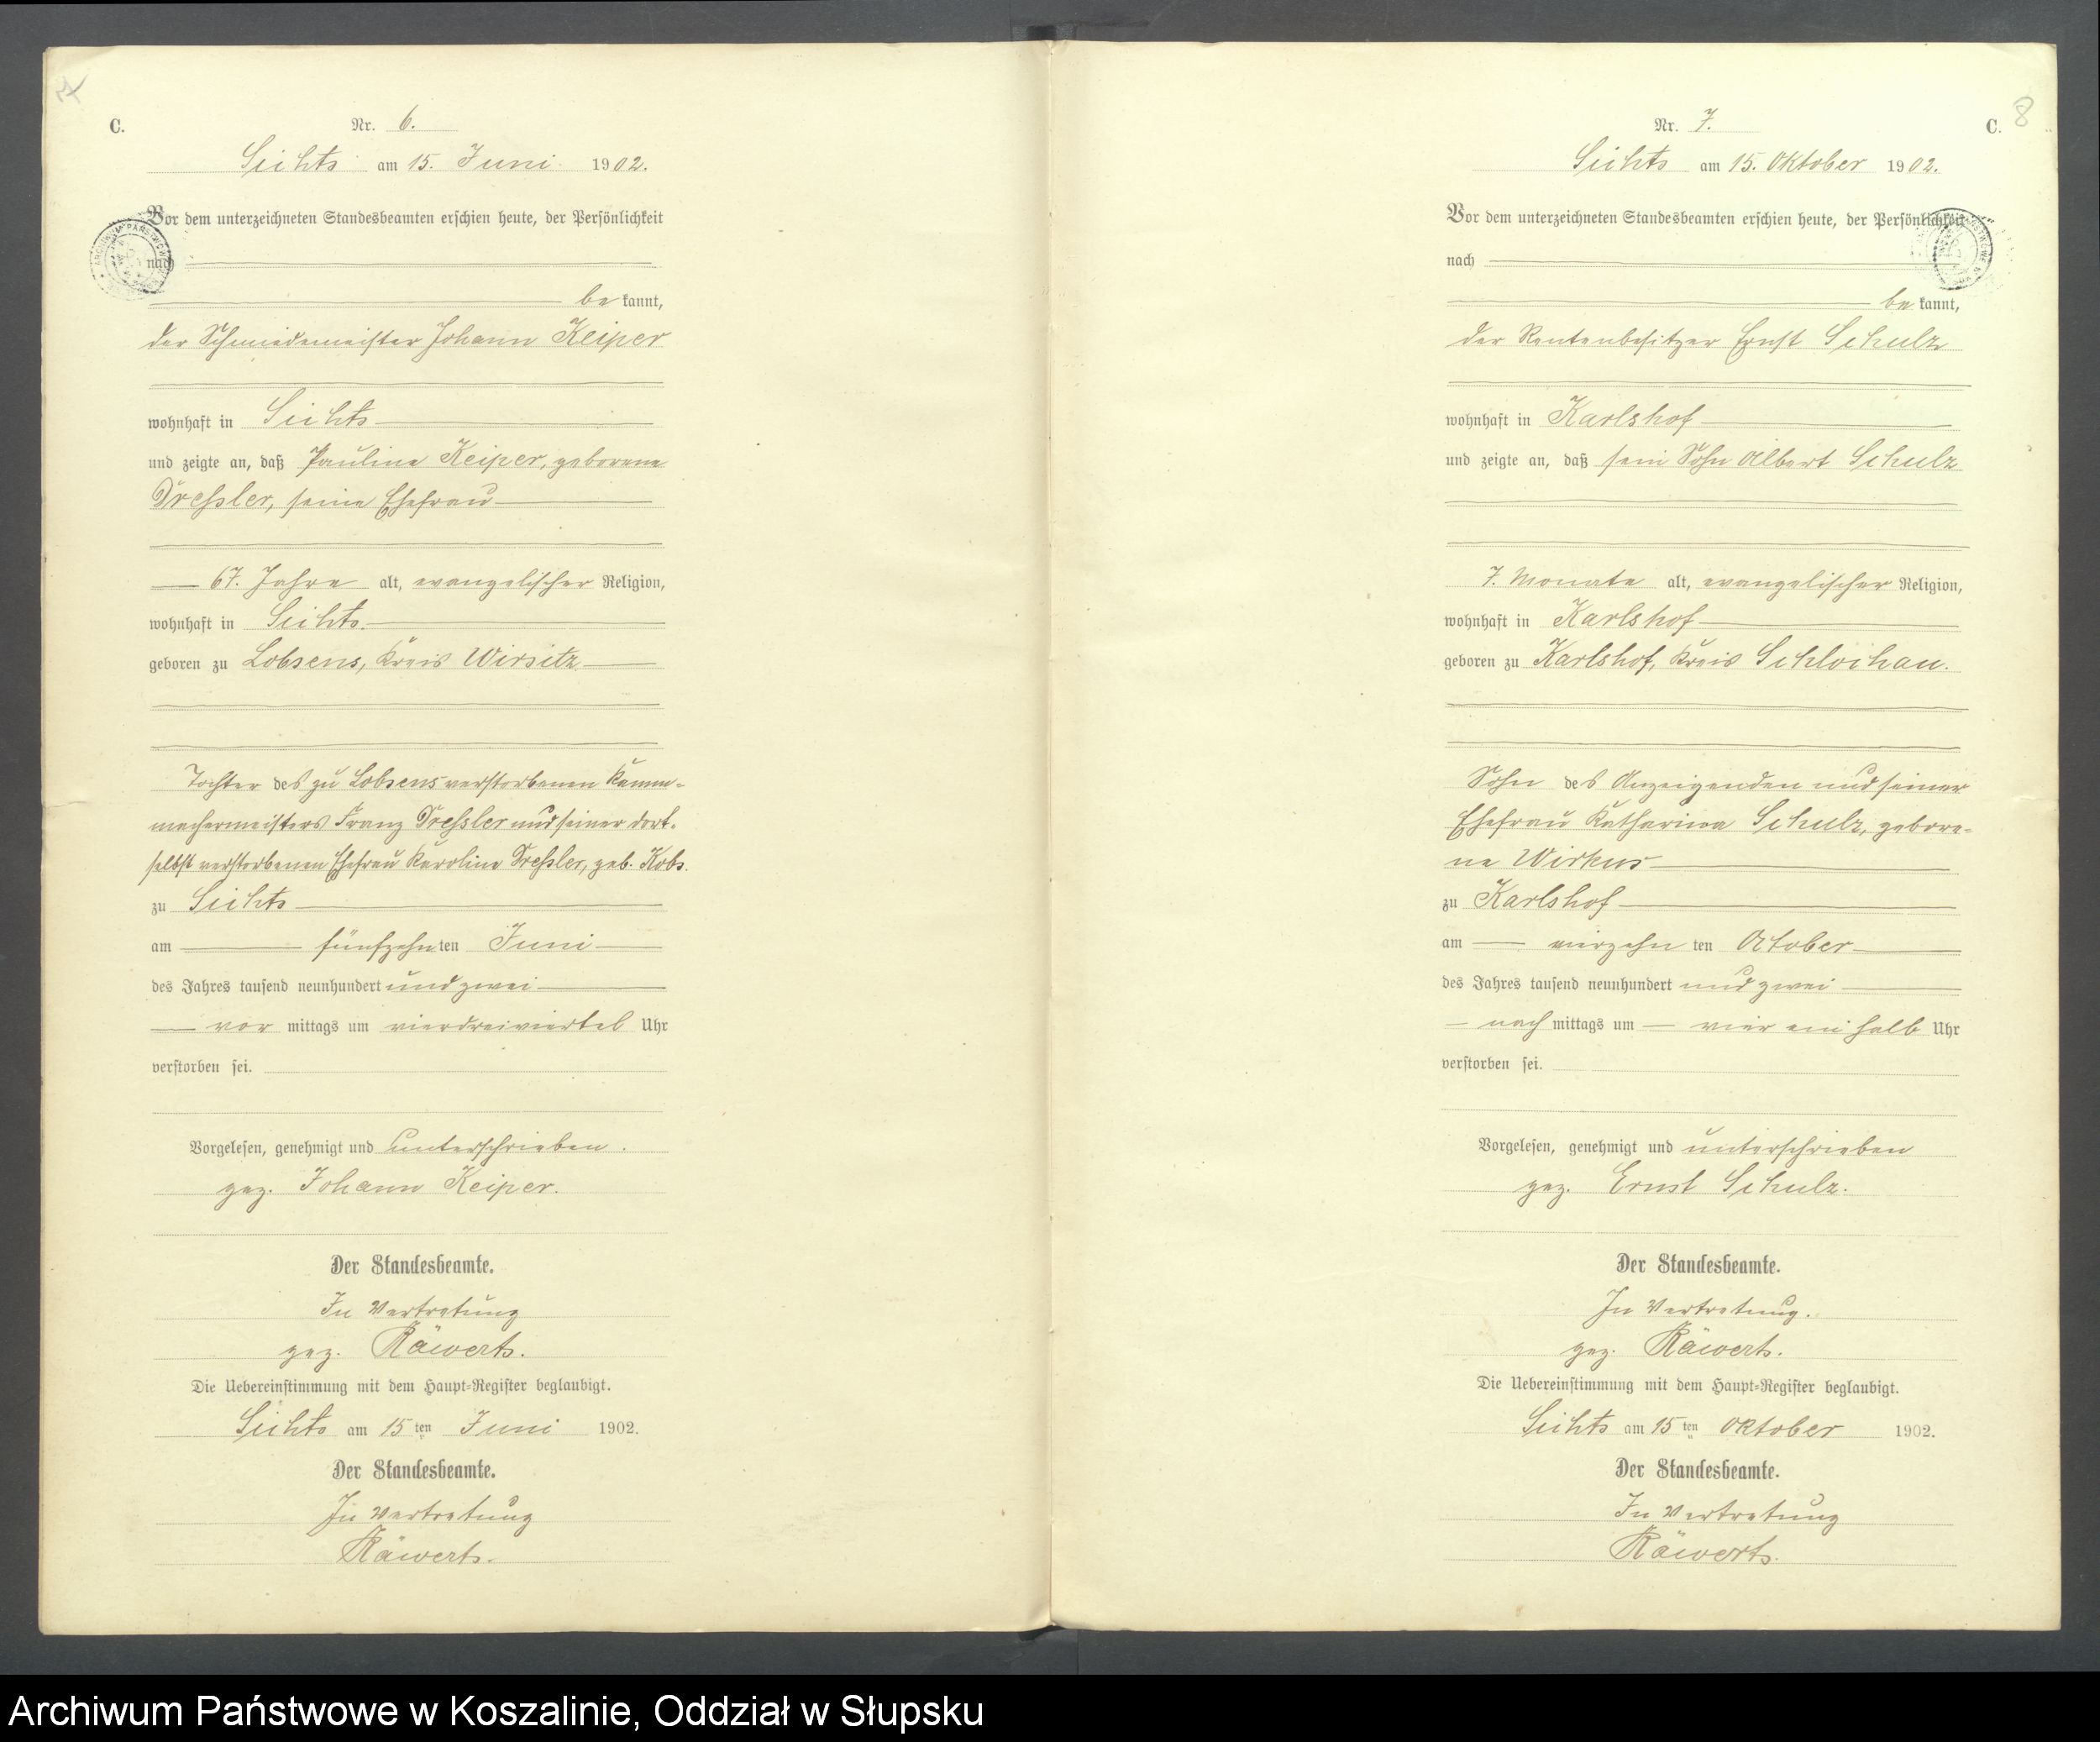 C.
Nr. 6.
Sichts am 15. Juni 1902.
Vor dem unterzeichneten Standesbeamten erschien heute, der Persönlichkeit
nach
be kannt,
der Schmiedemeister Johann Keiper
wohnhaft in Sichts
und zeigte an, daß Pauline Keiper, geborene
Dreßler, seine Ehefrau
67. Jahre alt, evangelischer Religion,
wohnhaft in Sichts.
geboren zu Lobsens, Kreis Wirsitz
Tochter des zu Lobsens verstorbenen Kamm-
machermeisters Franz Dreßler und seiner dort-
selbst verstorbenen Ehefrau Karoline Dreßler, geb. Kobs.
zu Sichts
am fünfzehn ten Juni
des Jahres tausend neunhundert und zwei
vor mittags um vierdreiviertel Uhr
verstorben sei.
Vorgelesen, genehmigt und unterschrieben.
gez. Johann Keiper.
Der Standesbeamte.
In Vertretung
gez. Räwerts.
Die Uebereinstimmung mit dem Haupt-Register beglaubigt.
Sichts am 15 ten Juni 1902.
Der Standesbeamte.
In Vertretung
Räwerts.
8
C.
Nr. 7.
Sichts am 15. Oktober 1902.
Vor dem unterzeichneten Standesbeamten erschien heute, der Persönlichkeit
nach
be kannt,
der Rentenbesitzer Ernst Schulz
wohnhaft in Karlshof
und zeigte an, daß sein Sohn Albert Schulz
7. Monate alt, evangelischer Religion,
wohnhaft in Karlshof
geboren zu Karlshof, Kreis Schlochau.
Sohn des Anzeigenden und seiner
Ehefrau Katharina Schulz, gebore-
ne Wirkus
zu Karlshof
am vierzehn ten October
des Jahres tausend neunhundert und zwei
nach mittags um vier ein halb Uhr
verstorben sei.
Vorgelesen, genehmigt und unterschrieben
gez. Ernst Schulz.
Der Standesbeamte.
In Vertretung.
gez. Räwerts.
Die Uebereinstimmung mit dem Haupt-Register beglaubigt.
Sichts am 15 ten Oktober 1902.
Der Standesbeamte.
In Vertretung
Räwerts.
Archiwum Państwowe w Koszalinie, Oddział w Słupsku